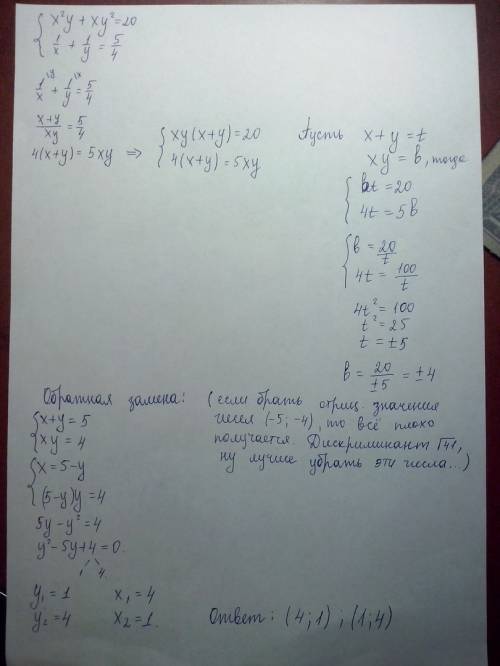 x²y + xy² = 20
1/x + 1/y = 5/4
1/x + 1/y = 5/4
x+y/xy = 5/4
4(x+y) = 5xy ⇒ { xy(x+y) = 20
4(x+y) = 5xy
Пусть x+y = t
xy = b, тогда
bt = 20
4t = 5b
b = 20/t
4t = 100/t
4t² = 100
t² = 25
t = ±5
b = 20/±5 = ±4
Обратная замена: (если брать отриц. значения
чисел (-5; -4), то всё плохо
получается. Дискриминант √41,
ну лучше убрать эти числа...)
x+y = 5
xy = 4
x = 5-y
(5-y)y = 4
5y - y² = 4
y² - 5y + 4 = 0.
1 4
y₁ = 1 x₁ = 4
y₂ = 4 x₂ = 1.
Ответ: (4; 1) ; (1; 4)